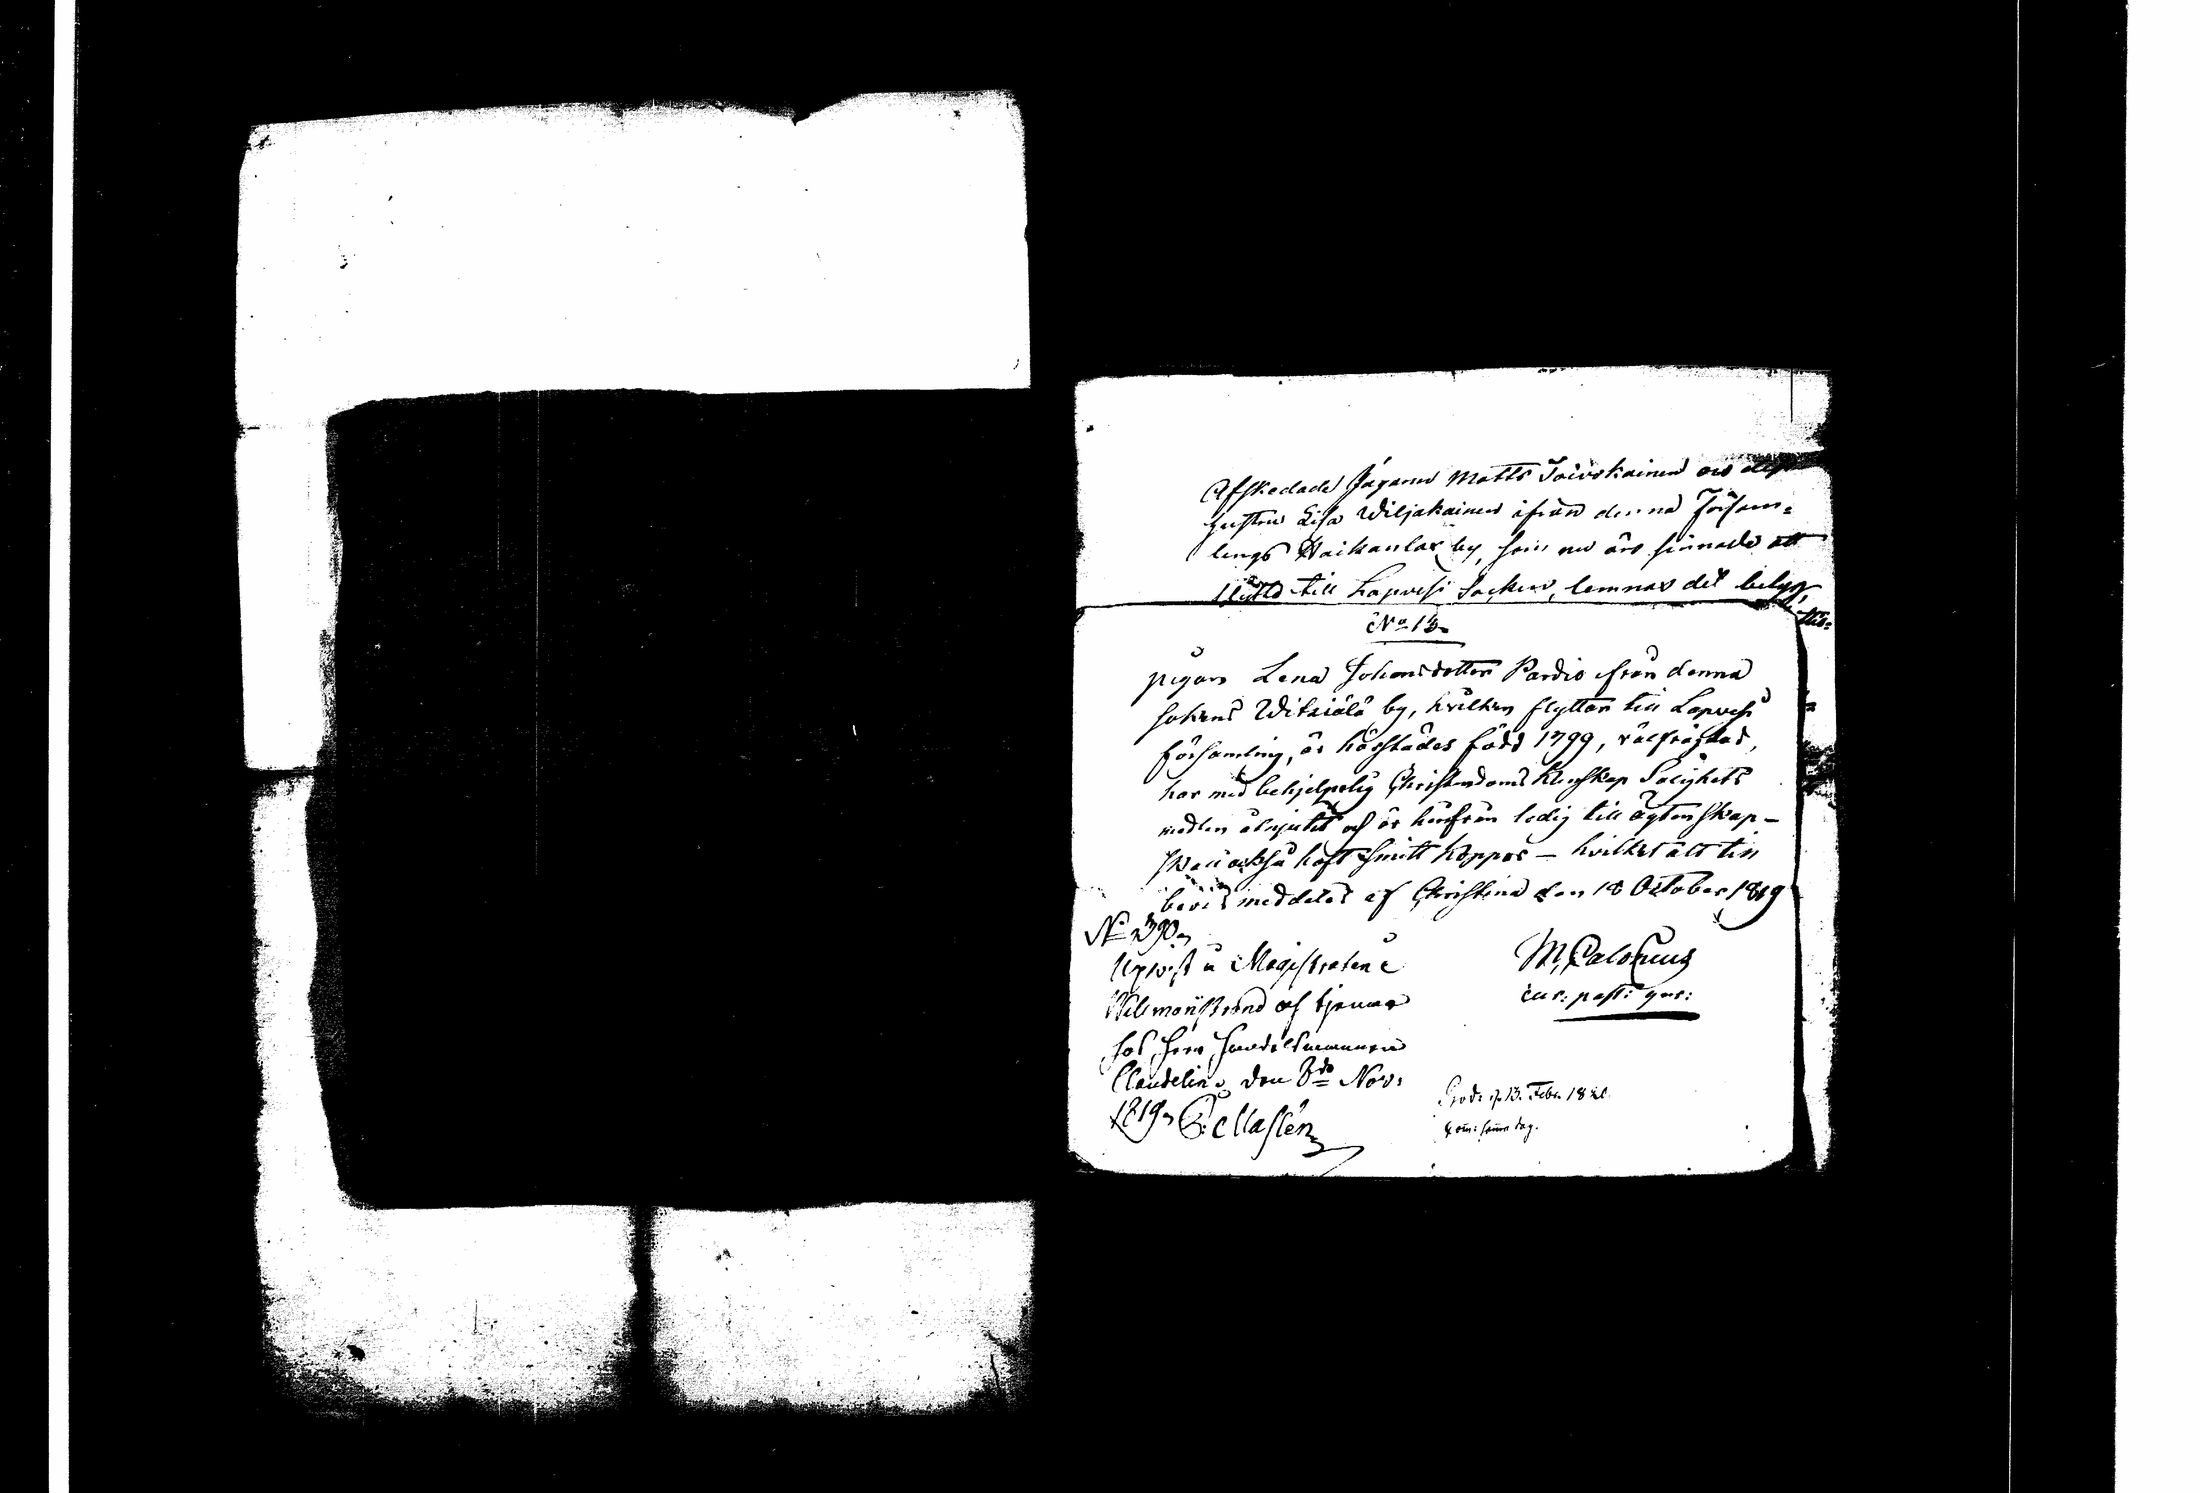 Afskedade Jägaren Matts Toivokainen och dess
hustru Lisa Wiljakainen ifrån denna Försam=
lings Haikanlax by, som nu äro sinnade att
flytta till Lapvesi Socken, lemnas det betyg,
No 13.
Pigan Lena Johansdotter Pardio från denna
sokens Witsiälä by, hvilken flyttar till Lapvesi
församling, är härstädes född 1799, välfrägdad,
har med behjelpelig Christendoms kunskap Salighets
medlen åtnjutit och är härifrån ledig till ägtenskap –
skall också haft Smitt koppor – hvilket allt till
bevis meddelas af Christina den 18 October 1819
No 390.
M. Calonius
cur: past: gur:
Upvist å Magistraten i
Wilmanstrand och tjenar
hos Herr Handelsmannen
Claudelin, den 8de Nov:
1819. C: Maslén
Prod: d. 13. Febr. 1821.
samma dag.